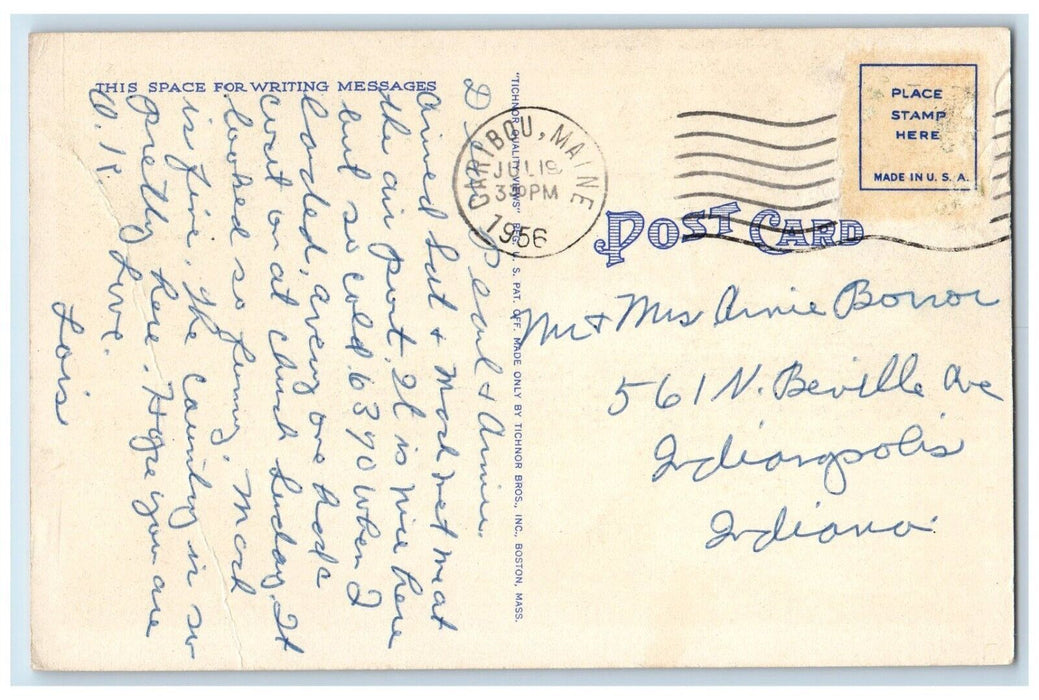 THIS SPACE FOR WRITING MESSAGES
D. Pearl & Arnie.
Arrived Sat & Mack met me at
the air port. It is nice here
but so cold 63 90 when I
loaded, every one had a
coat on at church Sunday. It
looked so funny. Mack
is fine. The Country is so
pretty here. Hope you are
O. K. Love.
Lois
"TICHNOR QUALITY VIEWS" REG. U. S. PAT. OFF. MADE ONLY BY TICHNOR BROS., INC., BOSTON, MASS.
CARIBOU, MAINE
JUL 18
3 30 PM
1956
PLACE
STAMP
HERE
MADE IN U. S. A.
POST CARD
Mr & Mrs Arnie Borror
561 N. Beville Ave
Indianapolis
Indiana